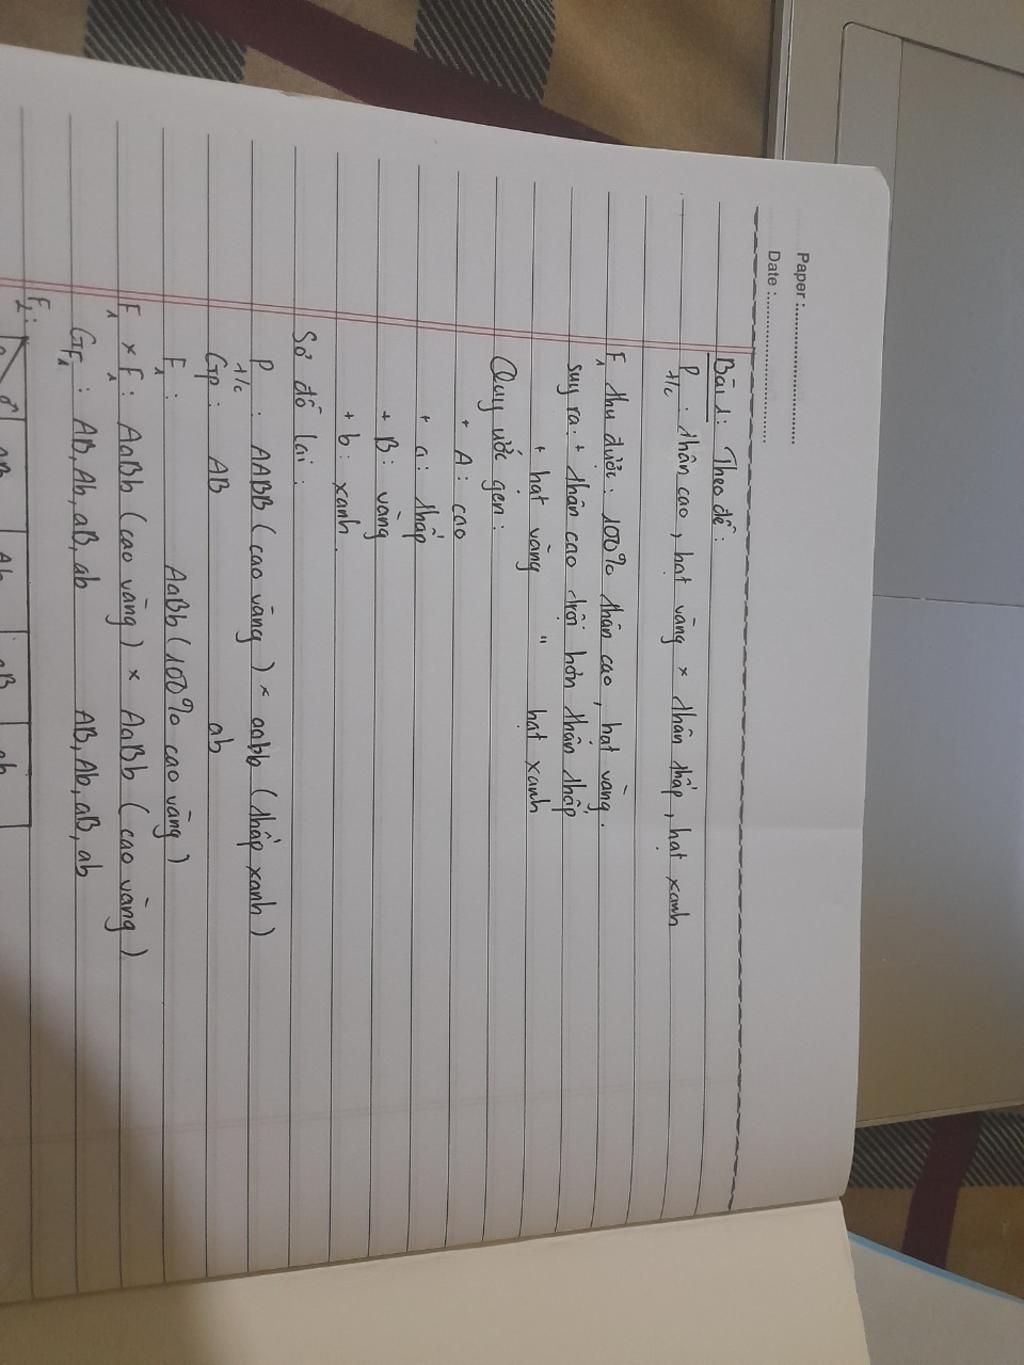 Paper :
Date :
Bài 1: Theo đề :
P t/c : thân cao, hạt vàng × thân thấp, hạt xanh
F1 thu được : 100% thân cao, hạt vàng.
suy ra: + thân cao trội hơn thân thấp
+ hạt vàng " hạt xanh
Quy ước gen :
+ A: cao
+ a: thấp
+ B: vàng
+ b: xanh.
Sơ đồ lai :
P t/c : AABB (cao vàng) × aabb (thấp xanh)
Gp : AB ab
F1 : AaBb (100% cao vàng)
F1 × F1 : AaBb (cao vàng) × AaBb (cao vàng)
GF1 : AB, Ab, aB, ab AB, Ab, aB, ab
F2 :
♂ AB Ab aB ab